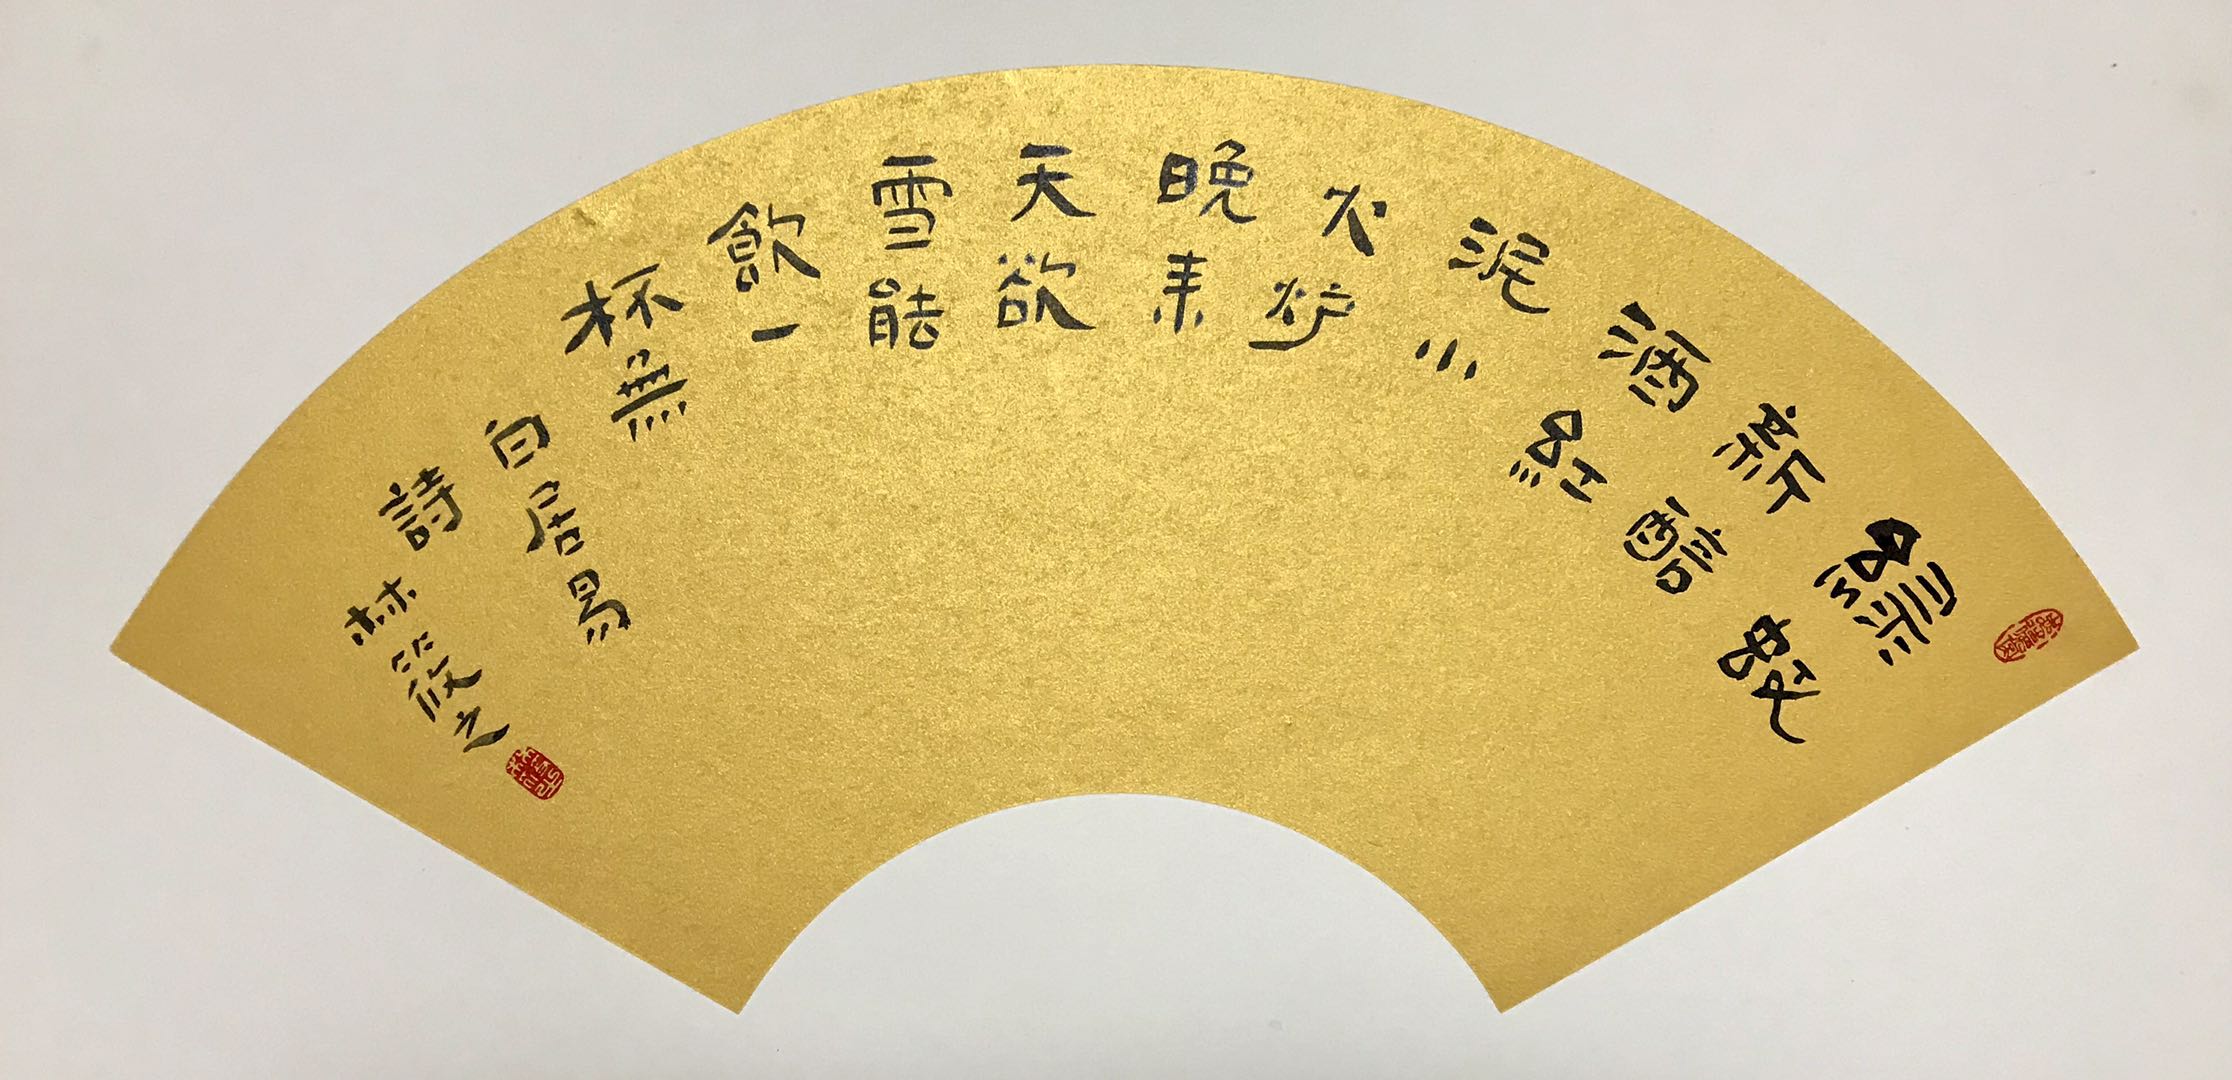 綠蚁
新醅
酒紅
泥小
火炉
晚来
天欲
雪能
飲一
杯無
白居易
詩林筱之